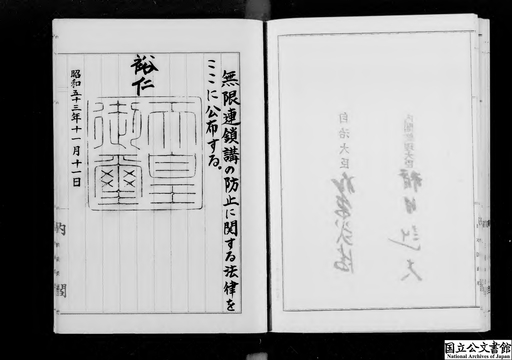 無限連鎖講の防止に関する法律を
ここに公布する。
裕仁
天皇
御璽
昭和五十三年十一月十一日
内
閣
自治大臣
国立公文書館
National Archives of Japan